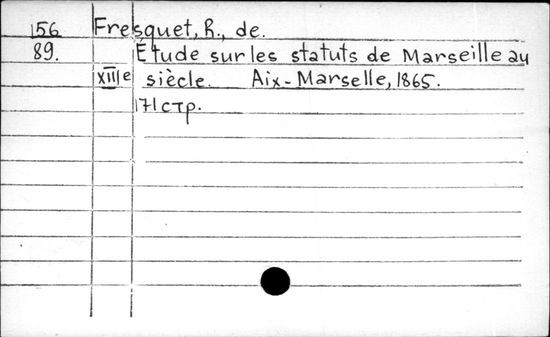 156 Fresquet, R., de.
89. Étude sur les statuts de Marseille au
XIIIe siècle. Aix-Marselle, 1865.
171 стр.